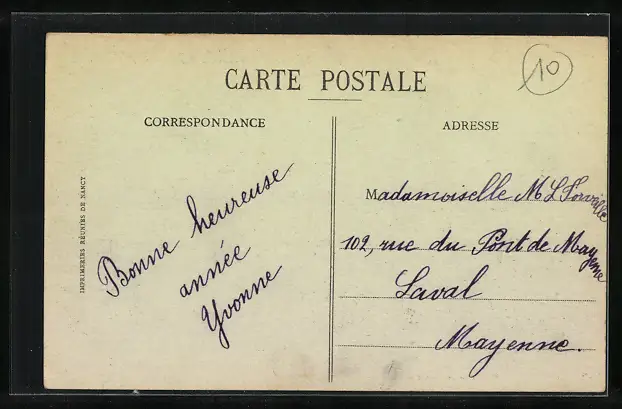 10
CARTE POSTALE
CORRESPONDANCE
ADRESSE
IMPRIMERIES RÉUNIES DE NANCY
Bonne heureuse
année
Yvonne
Madamoiselle M L
102, rue du Pont de Mayenne
Laval
Mayenne.